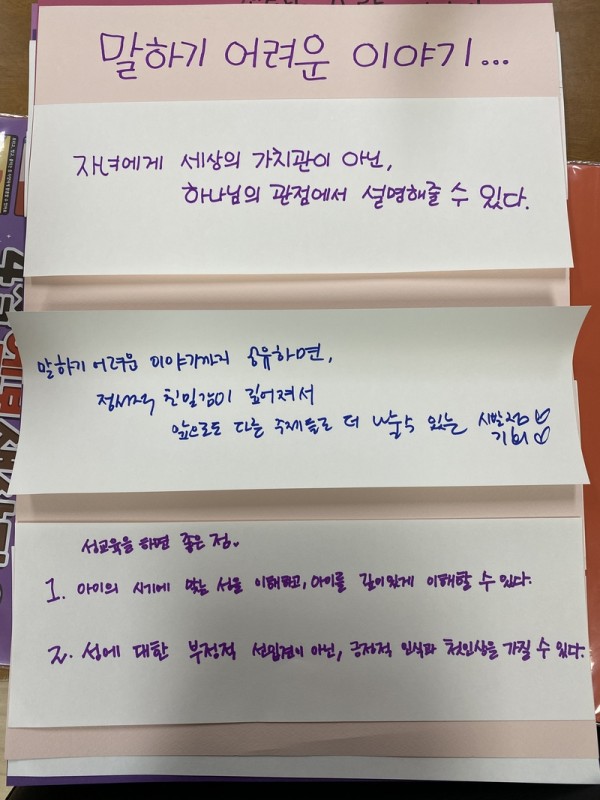 말하기 어려운 이야기...
자녀에게 세상의 가치관이 아닌,
하나님의 관점에서 설명해줄 수 있다.
말하기 어려운 이야기까지 공유하면,
정서적 친밀감이 깊어져서
앞으로도 다른 주제들로 더 나눌수 있는 시발점♡
기회♡
성교육을 하면 좋은 점.
1. 아이의 시기에 맞는 성을 이해하고, 아이를 깊이있게 이해할 수 있다.
2. 성에 대한 부정적 선입견이 아닌, 긍정적 인식과 첫인상을 가질 수 있다.